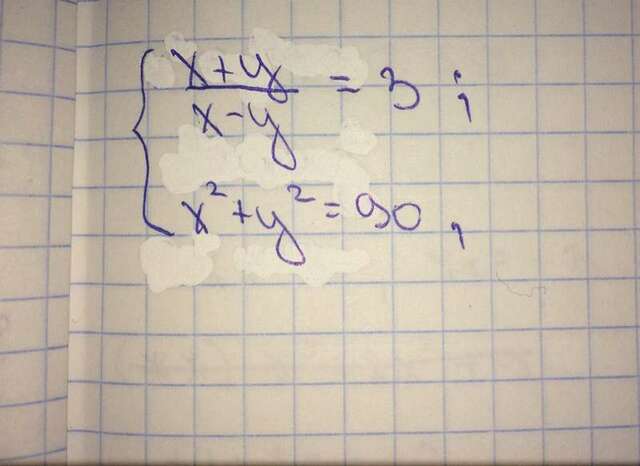 { x+y / x-y = 3 ;
x² + y² = 90 ,